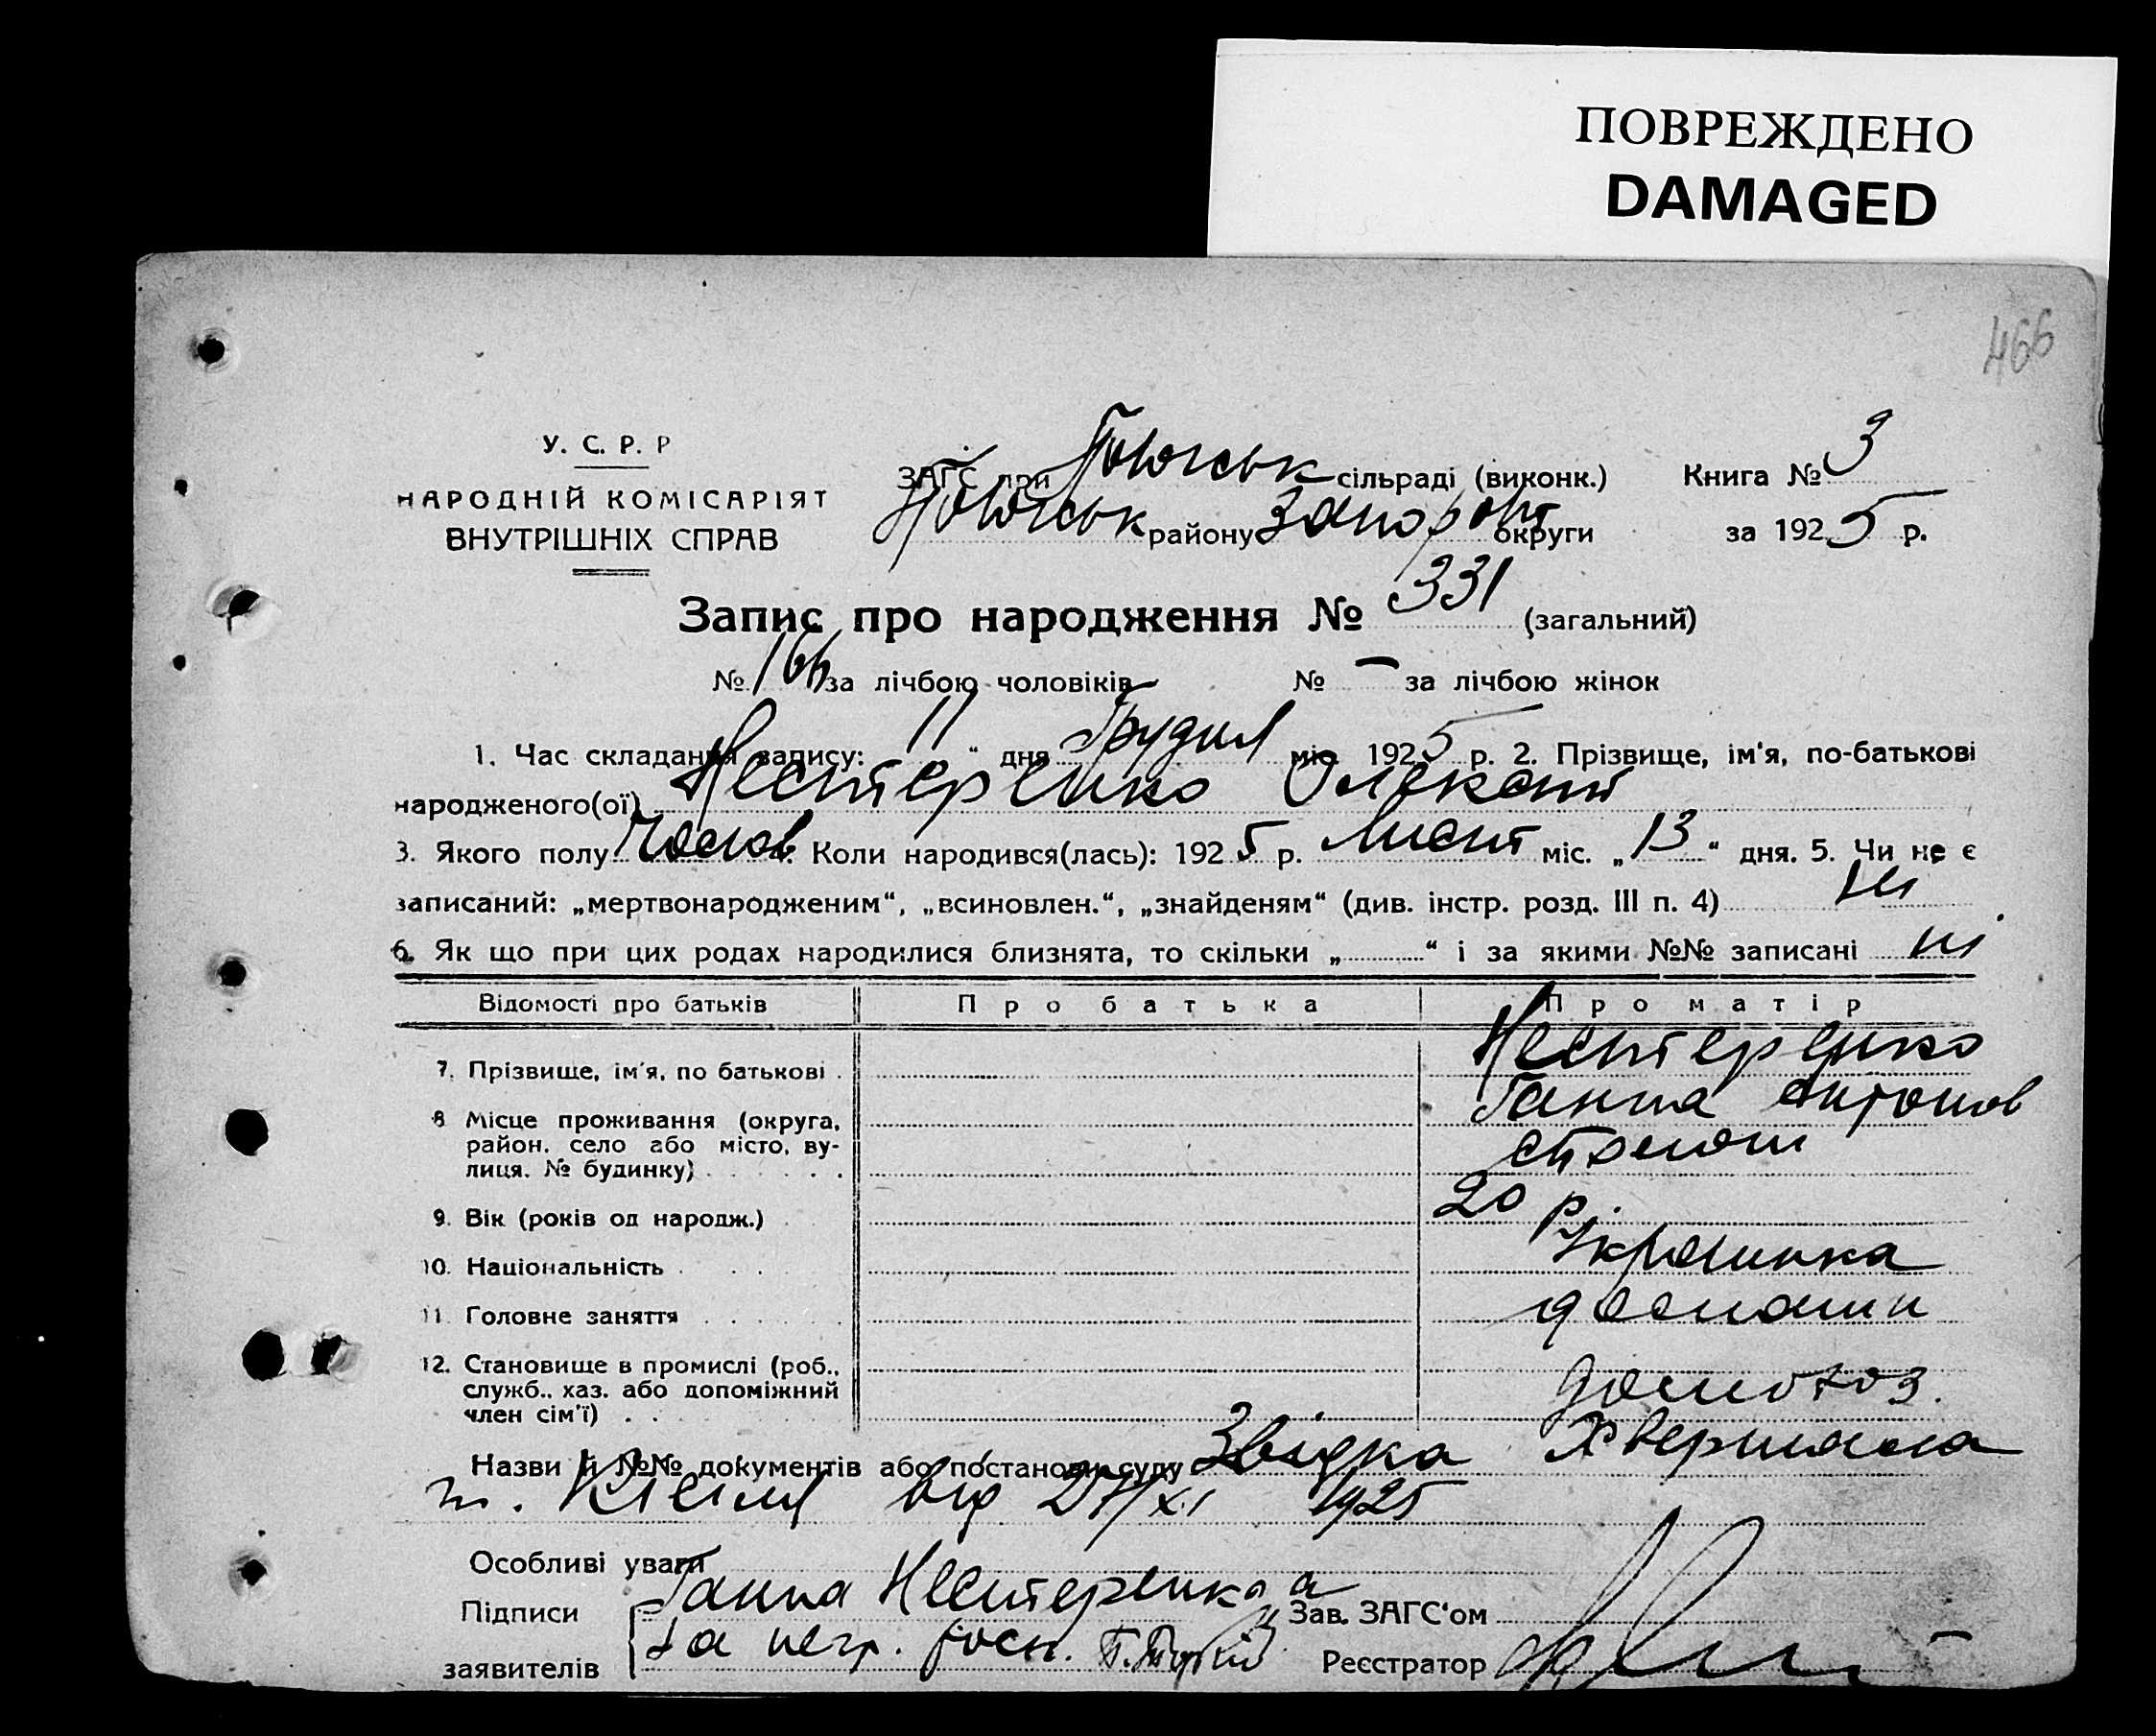 ПОВРЕЖДЕНО
DAMAGED
466
У. С. Р. Р
НАРОДНІЙ КОМІСАРІЯТ
ВНУТРІШНІХ СПРАВ
ЗАГС при сільраді (виконк.) Книга № 3
району Запоріт округи за 1925 р.
Запис про народження № 331 (загальний)
№ 166 за лічбою чоловіків № — за лічбою жінок
1. Час складання запису: 11 " дня Грудня міс. 1925 р. 2. Прізвище, ім'я, по-батькові
народженого(ої) Нестеренко Олексант
3. Якого полу Чолов. Коли народився(лась): 1925 р. Лист міс. „13" дня. 5. Чи не є
записаний: „мертвонародженим", „всиновлен.", „знайденям" (див. інстр. розд. III п. 4) ні
6. Як що при цих родах народилися близнята, то скільки „ " і за якими №№ записані ні
Відомості про батьків Про батька Про матір
7. Прізвище, ім'я, по батькові . Нестеренко
Ганна Антонов
8 Місце проживання (округа,
район, село або місто, ву-
лиця. № будинку)
9. Вік (років од народж.) 20 р.
10. Національність Українка
11. Головне заняття
12. Становище в промислі (роб.,
служб., хаз. або допоміжний
член сім'ї)
Назви й №№ документів або постанови суду Звідка
від 27/XI 1925
Особливі уваги
Підписи Ганна Нестеренкова Зав. ЗАГС'ом
заявителів За негр. Реєстратор